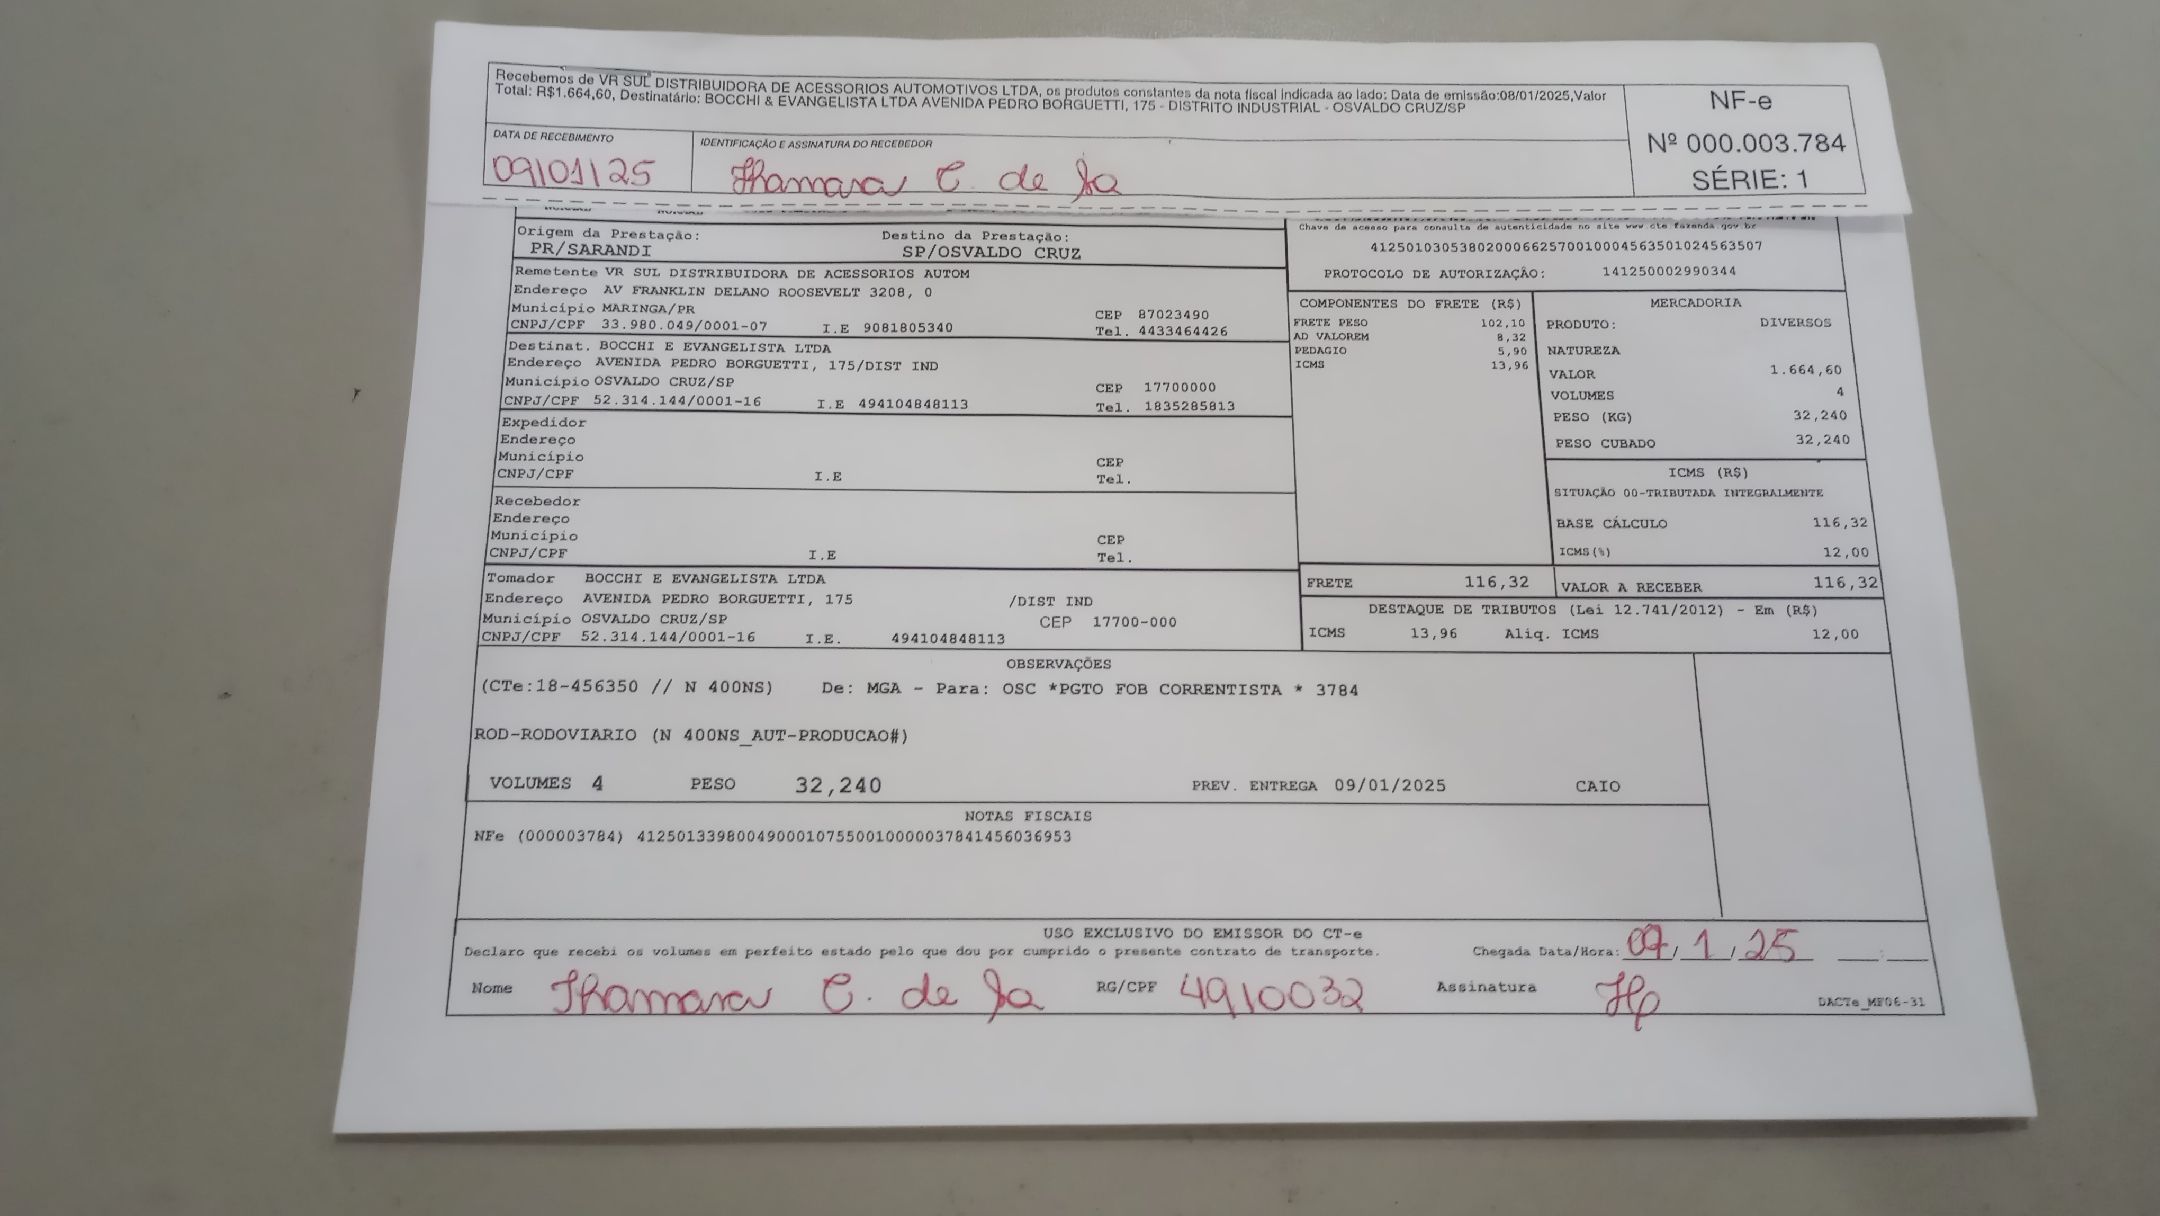 Recebemos de VR SUL DISTRIBUIDORA DE ACESSORIOS AUTOMOTIVOS LTDA, os produtos constantes da nota fiscal indicada ao lado; Data de emissão:08/01/2025,Valor
Total: R$1.664,60, Destinatário: BOCCHI & EVANGELISTA LTDA AVENIDA PEDRO BORGUETTI, 175 - DISTRITO INDUSTRIAL - OSVALDO CRUZ/SP
NF-e
Nº 000.003.784
SÉRIE: 1
DATA DE RECEBIMENTO
09/01/25
IDENTIFICAÇÃO E ASSINATURA DO RECEBEDOR
Thamara C. de Sa
Origem da Prestação:
PR/SARANDI
Destino da Prestação:
SP/OSVALDO CRUZ
Chave de acesso para consulta de autenticidade no site www.cte.fazenda.gov.br
41250103053802000662570010004563501024563507
PROTOCOLO DE AUTORIZAÇÃO: 141250002990344
Remetente VR SUL DISTRIBUIDORA DE ACESSORIOS AUTOM
Endereço AV FRANKLIN DELANO ROOSEVELT 3208, 0
Município MARINGA/PR CEP 87023490
CNPJ/CPF 33.980.049/0001-07 I.E 9081805340 Tel. 4433464426
Destinat. BOCCHI E EVANGELISTA LTDA
Endereço AVENIDA PEDRO BORGUETTI, 175/DIST IND
Município OSVALDO CRUZ/SP CEP 17700000
CNPJ/CPF 52.314.144/0001-16 I.E 494104848113 Tel. 1835285813
Expedidor
Endereço
Município CEP
CNPJ/CPF I.E Tel.
Recebedor
Endereço
Município CEP
CNPJ/CPF I.E Tel.
Tomador BOCCHI E EVANGELISTA LTDA
Endereço AVENIDA PEDRO BORGUETTI, 175 /DIST IND
Município OSVALDO CRUZ/SP CEP 17700-000
CNPJ/CPF 52.314.144/0001-16 I.E. 494104848113
COMPONENTES DO FRETE (R$)
FRETE PESO 102,10
AD VALOREM 8,32
PEDAGIO 5,90
ICMS 13,96
MERCADORIA
PRODUTO: DIVERSOS
NATUREZA
VALOR 1.664,60
VOLUMES 4
PESO (KG) 32,240
PESO CUBADO 32,240
ICMS (R$)
SITUAÇÃO 00-TRIBUTADA INTEGRALMENTE
BASE CÁLCULO 116,32
ICMS(%) 12,00
FRETE 116,32
VALOR A RECEBER 116,32
DESTAQUE DE TRIBUTOS (Lei 12.741/2012) - Em (R$)
ICMS 13,96 Aliq. ICMS 12,00
OBSERVAÇÕES
(CTe:18-456350 // N 400NS) De: MGA - Para: OSC *PGTO FOB CORRENTISTA * 3784
ROD-RODOVIARIO (N 400NS_AUT-PRODUCAO#)
VOLUMES 4 PESO 32,240 PREV. ENTREGA 09/01/2025 CAIO
NOTAS FISCAIS
NFe (000003784) 41250133980049000107550010000037841456036953
USO EXCLUSIVO DO EMISSOR DO CT-e
Declaro que recebi os volumes em perfeito estado pelo que dou por cumprido o presente contrato de transporte. Chegada Data/Hora: 09/1/25 __:__
Nome Thamara C. de Sa RG/CPF 4910032 Assinatura
DACTe_MF06-31